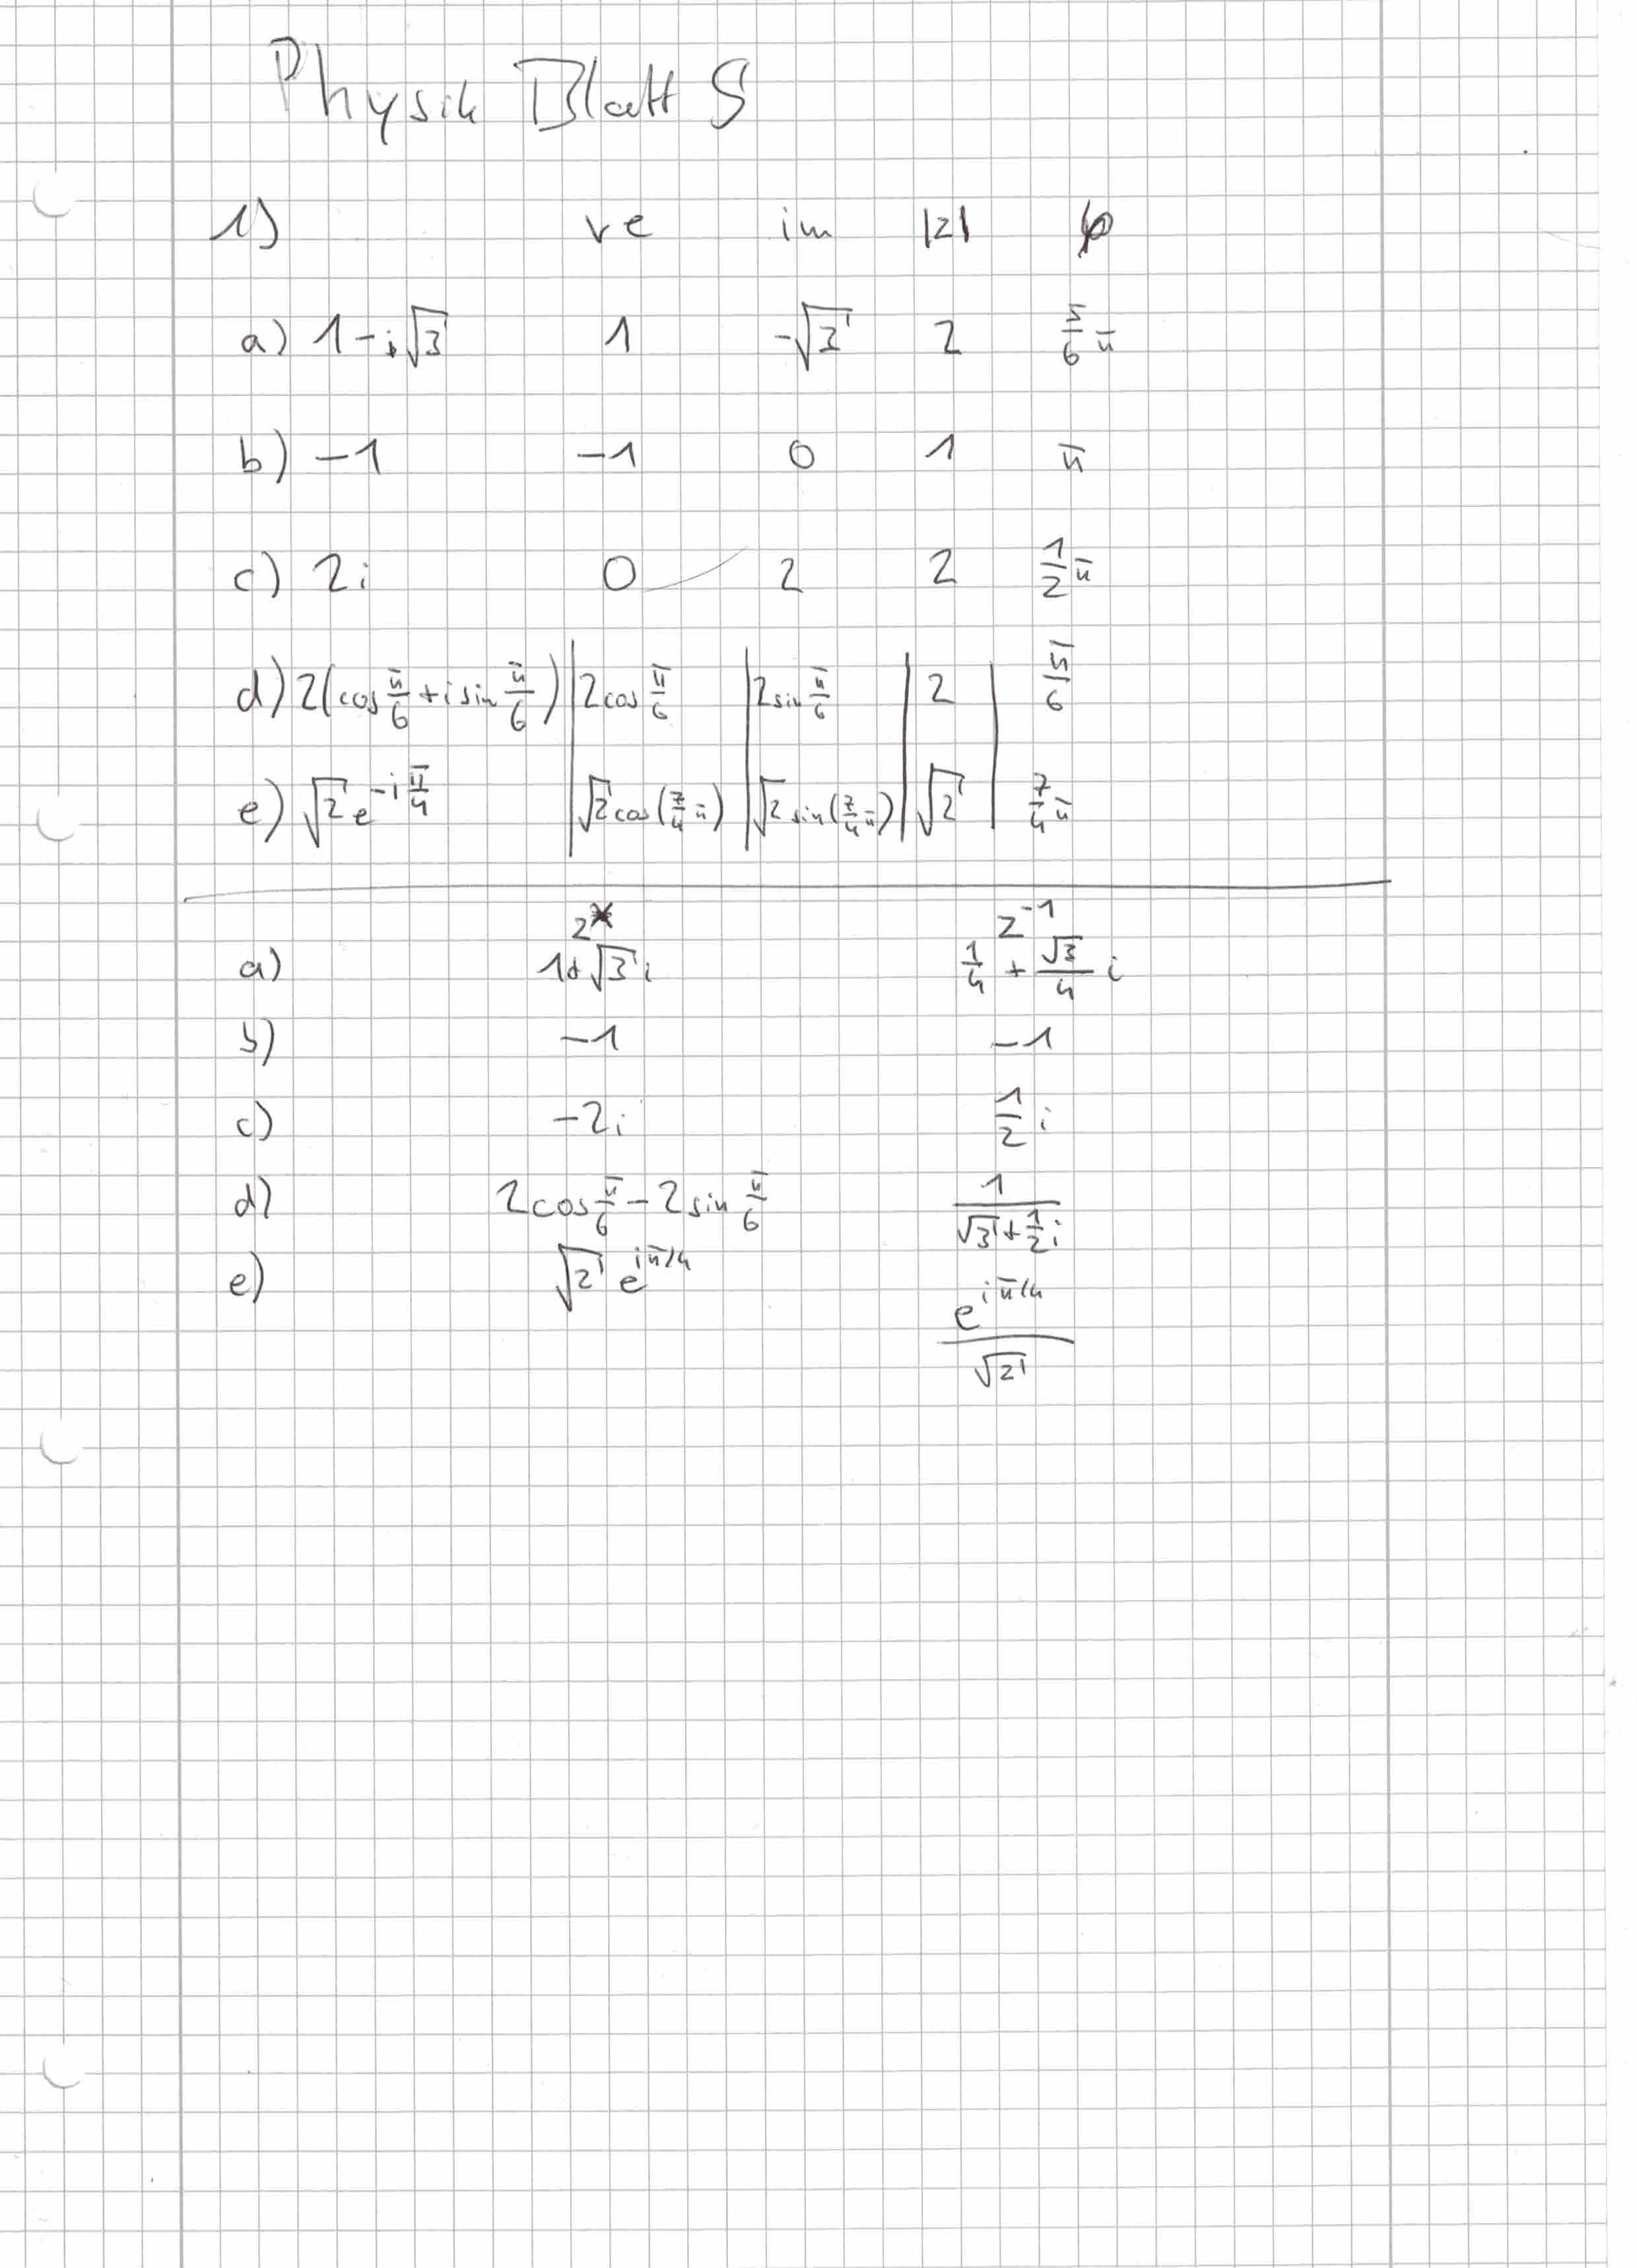 Physik Blatt 5
1) re im |z| φ
a) 1-i√3 1 -√3 2 5/6 π
b) -1 -1 0 1 π
c) 2i 0 2 2 1/2 π
d) 2(cos π/6 + i sin π/6) | 2cos π/6 | 2sin π/6 | 2 | π/6
e) √2 e^(-i π/4) | √2 cos(7/4 π) | √2 sin(7/4 π) | √2 | 7/4 π
z* z^-1
a) 1+√3 i 1/4 + √3/4 i
b) -1 -1
c) -2i 1/2 i
d) 2cos π/6 - 2 sin π/6 1/(√3+1/2 i)
e) √2 e^(iπ/4) e^(iπ/4)/√2